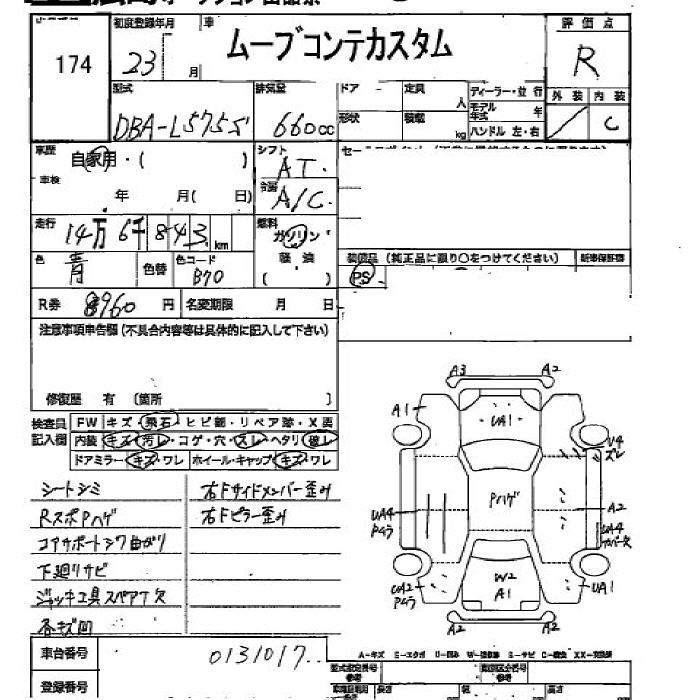 174
初度登録年月
23 月
車
ムーブコンテカスタム
評価点
R
型式
DBA-L575S
排気量
660cc
ドア
定員
人
形状
積載
kg
ディーラー・並行
モデル年式 年
ハンドル 左・右
外装 内装
C
車歴
自家用・( )
車検
年 月( 日)
シフト
AT
冷房
A/C
走行
14万6千843km
燃料
ガソリン
軽油
( )
色
青
色替
色コード
B70
装備品(純正品に限り○をつけてください)
新車保証書
PS
R券 8960円
名変期限 月 日
注意事項申告欄(不具合内容等は具体的に記入して下さい)
修復歴 有 〔箇所 〕
検査員記入欄
FW キズ・飛石・ヒビ割・リペア跡・X要
内装 キズ・汚レ・コゲ・穴・スレ・ヘタリ・破レ
ドアミラー キズ・ワレ ホイール・キャップ キズ・ワレ
シートシミ
RスポPハゲ
コアサポートシワ曲がり
下廻りサビ
ジャッキ工具スペアT欠
各キズ凹
右Fサイドメンバー歪み
右Fピラー歪み
A3 A2
A1 UA1
U4
ズレ
Pハゲ
UA4
Pムラ
A2
UA4
UA2
Pムラ
W2
A1
UA1
A2 A2
車台番号
0131017
登録番号
型式指定番号
参考
類別区分番号
参考
長さ 幅 高さ